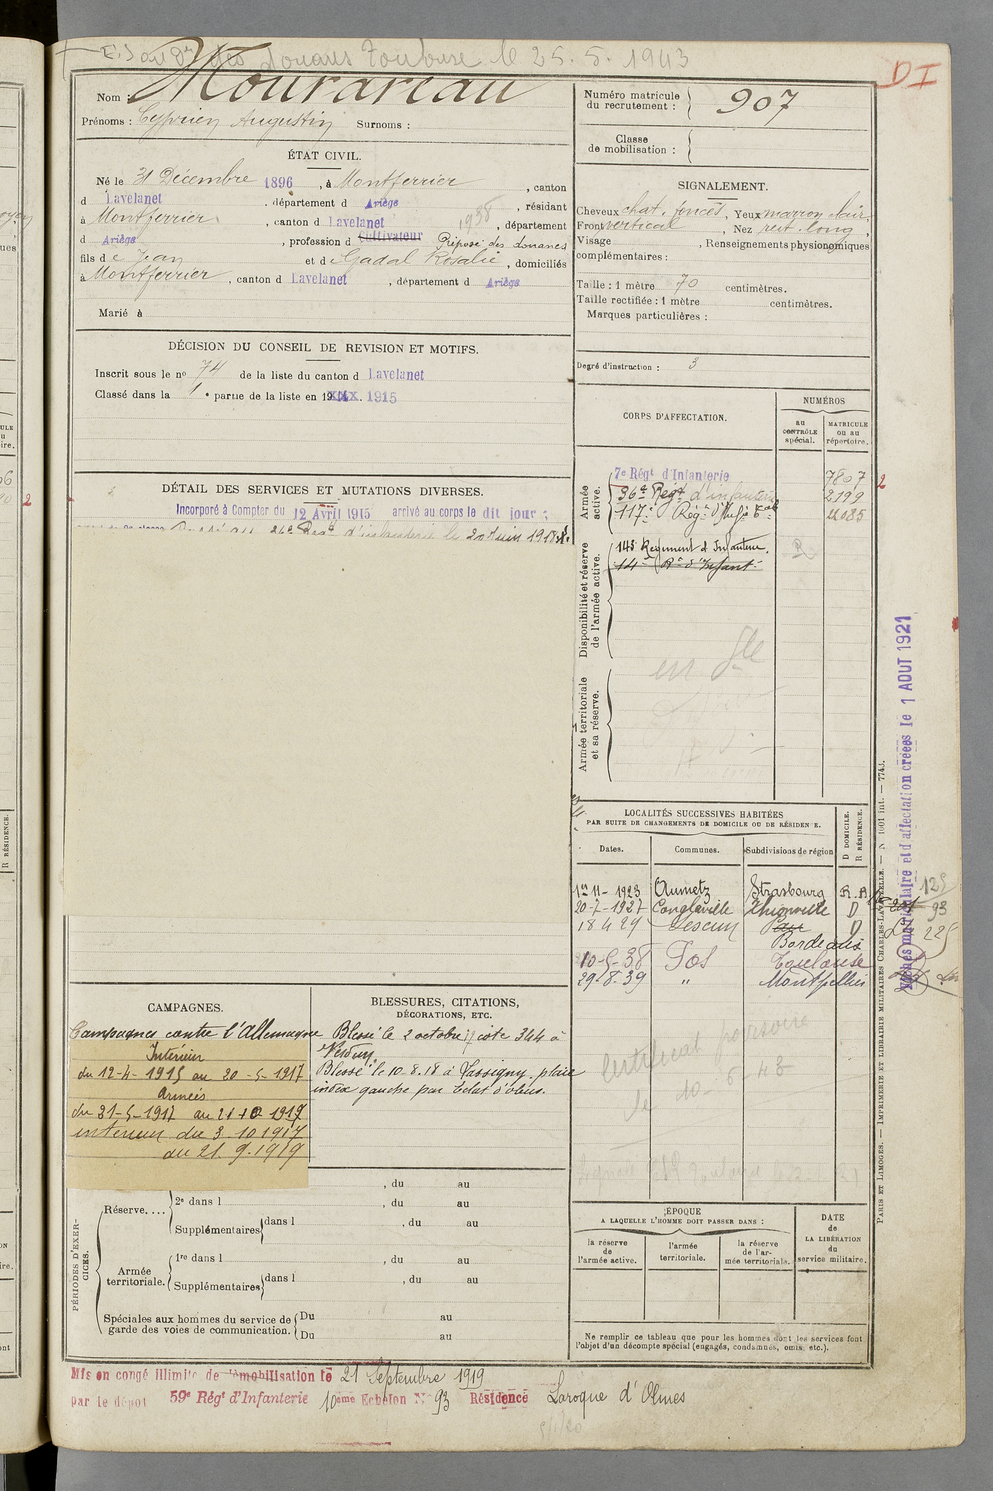 douanes Toulouse le 25.5.1943
DI
Nom : Mourareau
Prénoms : Cyprien Augustin Surnoms :
Numéro matricule du recrutement : 907
Classe de mobilisation :
ÉTAT CIVIL.
Né le 31 Décembre 1896, à Montferrier, canton
d Lavelanet, département d Ariège, résidant
à Montferrier, canton d Lavelanet 1938, département
d Ariège, profession d Cultivateur Préposé des douanes
fils de Jean et de Gadal Rosalie, domiciliés
à Montferrier, canton d Lavelanet, département d Ariège
Marié à
SIGNALEMENT.
Cheveux chat. foncés, Yeux marron clair,
Front vertical, Nez rect. long,
Visage , Renseignements physionomiques
complémentaires :
Taille : 1 mètre 70 centimètres.
Taille rectifiée : 1 mètre centimètres.
Marques particulières :
Degré d'instruction : 3
DÉCISION DU CONSEIL DE REVISION ET MOTIFS.
Inscrit sous le nº 74 de la liste du canton d Lavelanet
Classé dans la 1e partie de la liste en 19 1915
DÉTAIL DES SERVICES ET MUTATIONS DIVERSES.
Incorporé à Compter du 12 Avril 1915 arrivé au corps le dit jour
Régt d'infanterie le 20 Juin 1918
CORPS D'AFFECTATION.
NUMÉROS
au CONTRÔLE spécial.
MATRICULE ou au répertoire.
Armée active.
7e Régt d'Infanterie 7807
96e Régt d'infanterie 2199
117e Régt d'Infie
Disponibilité et réserve de l'armée active.
143e Régiment d'Infanterie. R
14e Rt d'Infant
Armée territoriale et sa réserve.
LOCALITÉS SUCCESSIVES HABITÉES
PAR SUITE DE CHANGEMENTS DE DOMICILE OU DE RÉSIDENCE.
Dates. Communes. Subdivisions de région D DOMICILE. R RÉSIDENCE.
1er 11-1923 Aumetz Strasbourg R.
20-7-1927 Conglaville Thionville D
18 4 29 Lescun Pau D
Bordeaux
10-5-38 Fos Toulouse
29-8-39 " Montpellier
Certificat provisoire
le 10-5-43
Fiches matriculaire et d'affectation créées le 1 AOUT 1921
PARIS ET LIMOGES. — IMPRIMERIE ET LIBRAIRIE MILITAIRES CHARLES-LAVAUZELLE.
CAMPAGNES.
Campagnes contre l'Allemagne
Intérieur
du 12-4-1915 au 30-5-1917
Armées
du 31-5-1917 au 2 10 1917
intérieur du 3.10 1917
au 21.9.1919
BLESSURES, CITATIONS,
DÉCORATIONS, ETC.
Blessé le 2 octobre 17 cote 344 à
Verdun
Blessé le 10.8.18 à Lassigny. plaie
index gauche par éclat d'obus.
PÉRIODES D'EXERCICES.
, du au
Réserve.... 2e dans l , du au
Supplémentaires dans l , du au
Armée territoriale. 1re dans l , du au
Supplémentaires dans l , du au
Spéciales aux hommes du service de garde des voies de communication. Du au
Du au
ÉPOQUE
A LAQUELLE L'HOMME DOIT PASSER DANS :
la réserve de l'armée active.
l'armée territoriale.
la réserve de l'armée territoriale.
DATE de LA LIBÉRATION du service militaire.
Ne remplir ce tableau que pour les hommes dont les services font
l'objet d'un décompte spécial (engagés, condamnés, omis, etc.).
Mis en congé illimité de démobilisation le 21 Septembre 1919
par le dépôt 59e Régt d'Infanterie 10ème Echelon N° 93 Résidence Laroque d'Olmes